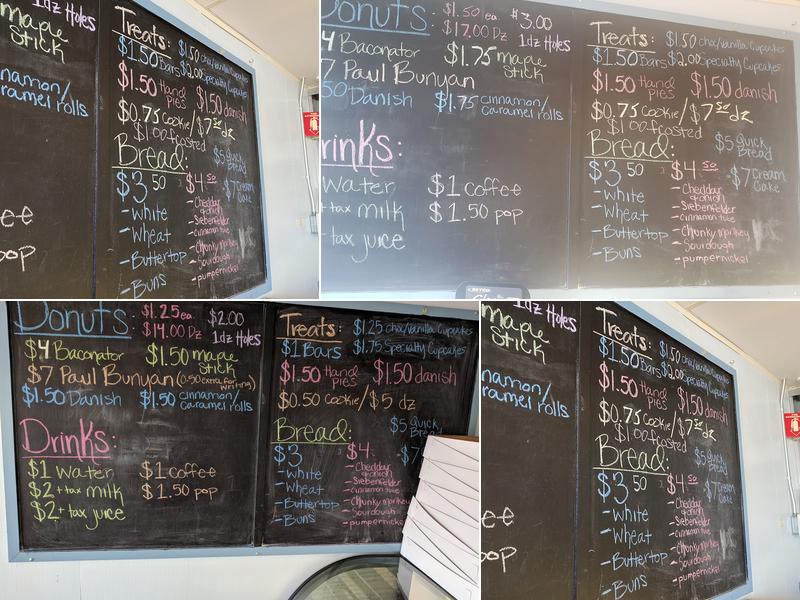 1dz Holes
maple
stick
nnamon/
aramel rolls
ee
pop
Treats:
$1.50 choc/vanilla Cupcakes
$1.50 Bars $2.00 Specialty Cupcakes
$1.50 Hand pies
$1.50 danish
$0.75 cookie/$7.50 dz
$1.00 frosted
Bread:
$5 Quick Bread
$3.50
$4.50
$7 Cream Cake
-White
-Wheat
-Buttertop
-Buns
-Cheddar & onion
-Siebenfelder
-cinnamon twie
-Chunky Monkey
-Sourdough
-pumpernickel
Donuts:
$1.50 ea.
$17.00 Dz
$3.00
1dz Holes
4 Baconator
$1.75 maple stick
7 Paul Bunyan
50 Danish
$1.75 cinnamon/
caramel rolls
rinks:
Water
$1 coffee
+ tax milk
$1.50 pop
+ tax juice
Treats:
$1.50 choc/vanilla Cupcakes
$1.50 Bars $2.00 Specialty Cupcakes
$1.50 Hand pies
$1.50 danish
$0.75 cookie/$7.50 dz
$1.00 frosted
Bread:
$5 Quick Bread
$3.50
$4.50
$7 Cream Cake
-White
-Wheat
-Buttertop
-Buns
-Cheddar & onion
-Siebenfelder
-cinnamon twie
-Chunky Monkey
-Sourdough
-pumpernickel
Donuts:
$1.25 ea.
$14.00 Dz
$2.00
1dz Holes
$4 Baconator
$1.50 maple stick
$7 Paul Bunyan (0.50 extra for writing)
$1.50 Danish
$1.50 cinnamon/
caramel rolls
Drinks:
$1 Water
$1 coffee
$2 + tax milk
$1.50 pop
$2 + tax juice
Treats:
$1.25 choc/vanilla Cupcakes
$1 Bars
$1.75 Specialty Cupcakes
$1.50 Hand pies
$1.50 danish
$0.50 cookie/$5 dz
Bread:
$5 Quick Bread
$3
$4
$7
-White
-Wheat
-Buttertop
-Buns
-Cheddar & onion
-Siebenfelder
-cinnamon twie
-Chunky Monkey
-Sourdough
-pumpernickel
1dz Holes
maple
stick
nnamon/
aramel rolls
ee
pop
Treats:
$1.50 choc/vanilla Cupcakes
$1.50 Bars $2.00 Specialty Cupcakes
$1.50 Hand pies
$1.50 danish
$0.75 cookie/$7.50 dz
$1.00 frosted
Bread:
$5 Quick Bread
$3.50
$4.50
$7 Cream Cake
-White
-Wheat
-Buttertop
-Buns
-Cheddar & onion
-Siebenfelder
-cinnamon twie
-Chunky Monkey
-Sourdough
-pumpernickel